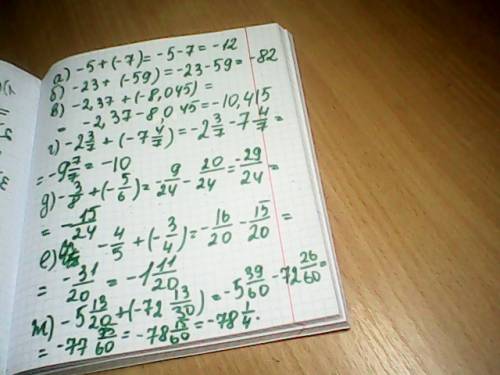 а) -5+(-7)=-5-7=-12
б) -23+(-59)=-23-59=-82
в) -2,37+(-8,045)=
= -2,37-8,045=-10,415
г) -2 3/7+(-7 4/7)=-2 3/7-7 4/7=
=-9 7/7=-10
д) -3/8+(-5/6)=-9/24-20/24=-29/24=
=- /24
е) -4/5+(-3/4)=-16/20-15/20=
=-31/20=-1 11/20
ж) -5 13/20+(-72 13/30)=-5 39/60-72 26/60=
=-77 /60=-78 /60=-78 1/4.